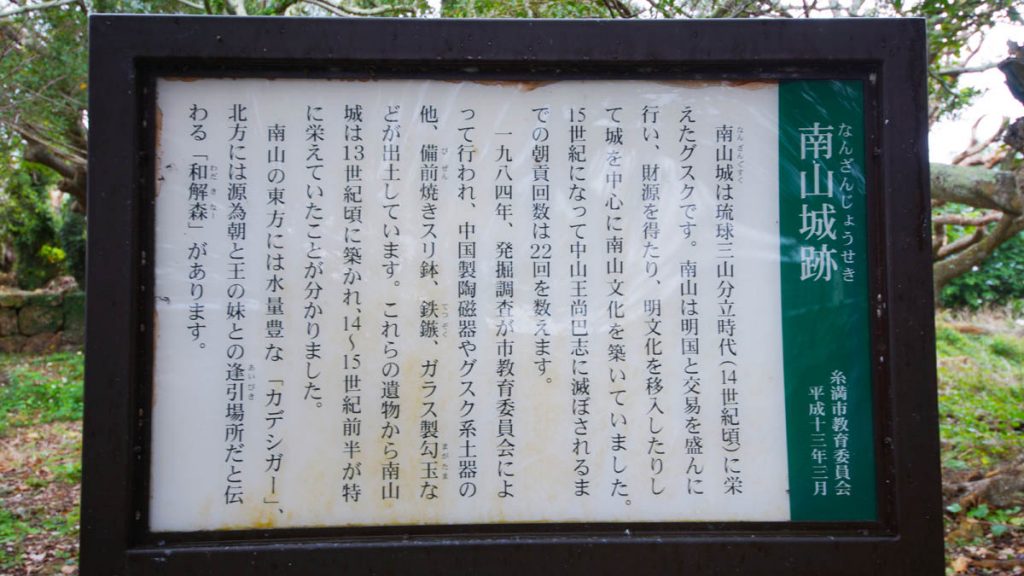 南山城跡
なんざんじょうせき
糸満市教育委員会
平成十三年三月
南山城は琉球三山分立時代(14世紀頃)に栄
なんざんぐすく
えたグスクです。南山は明国と交易を盛んに
行い、財源を得たり、明文化を移入したりし
て城を中心に南山文化を築いていました。
15世紀になって中山王尚巴志に滅ぼされるま
での朝貢回数は22回を数えます。
一九八四年、発掘調査が市教育委員会によ
って行われ、中国製陶磁器やグスク系土器の
他、備前焼きスリ鉢、鉄鏃、ガラス製勾玉な
びぜん
てつぞく
まがたま
どが出土しています。これらの遺物から南山
城は13世紀頃に築かれ、14〜15世紀前半が特
に栄えていたことが分かりました。
南山の東方には水量豊な「カデシガー」、
北方には源為朝と王の妹との逢引場所だと伝
あいびき
わる「和解森」があります。
わだきなー